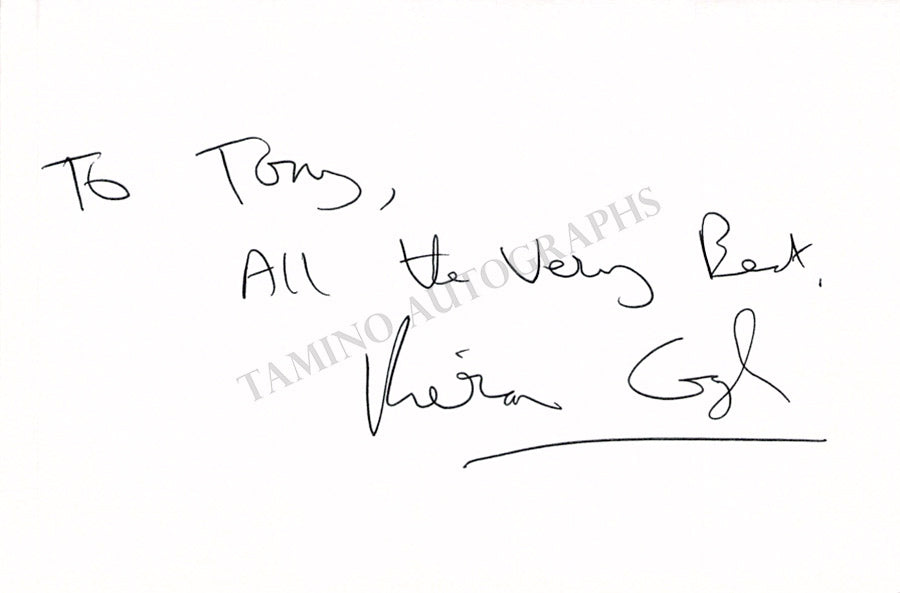 To Tony,
All the Very Best.
Kieran
TAMINO AUTOGRAPHS